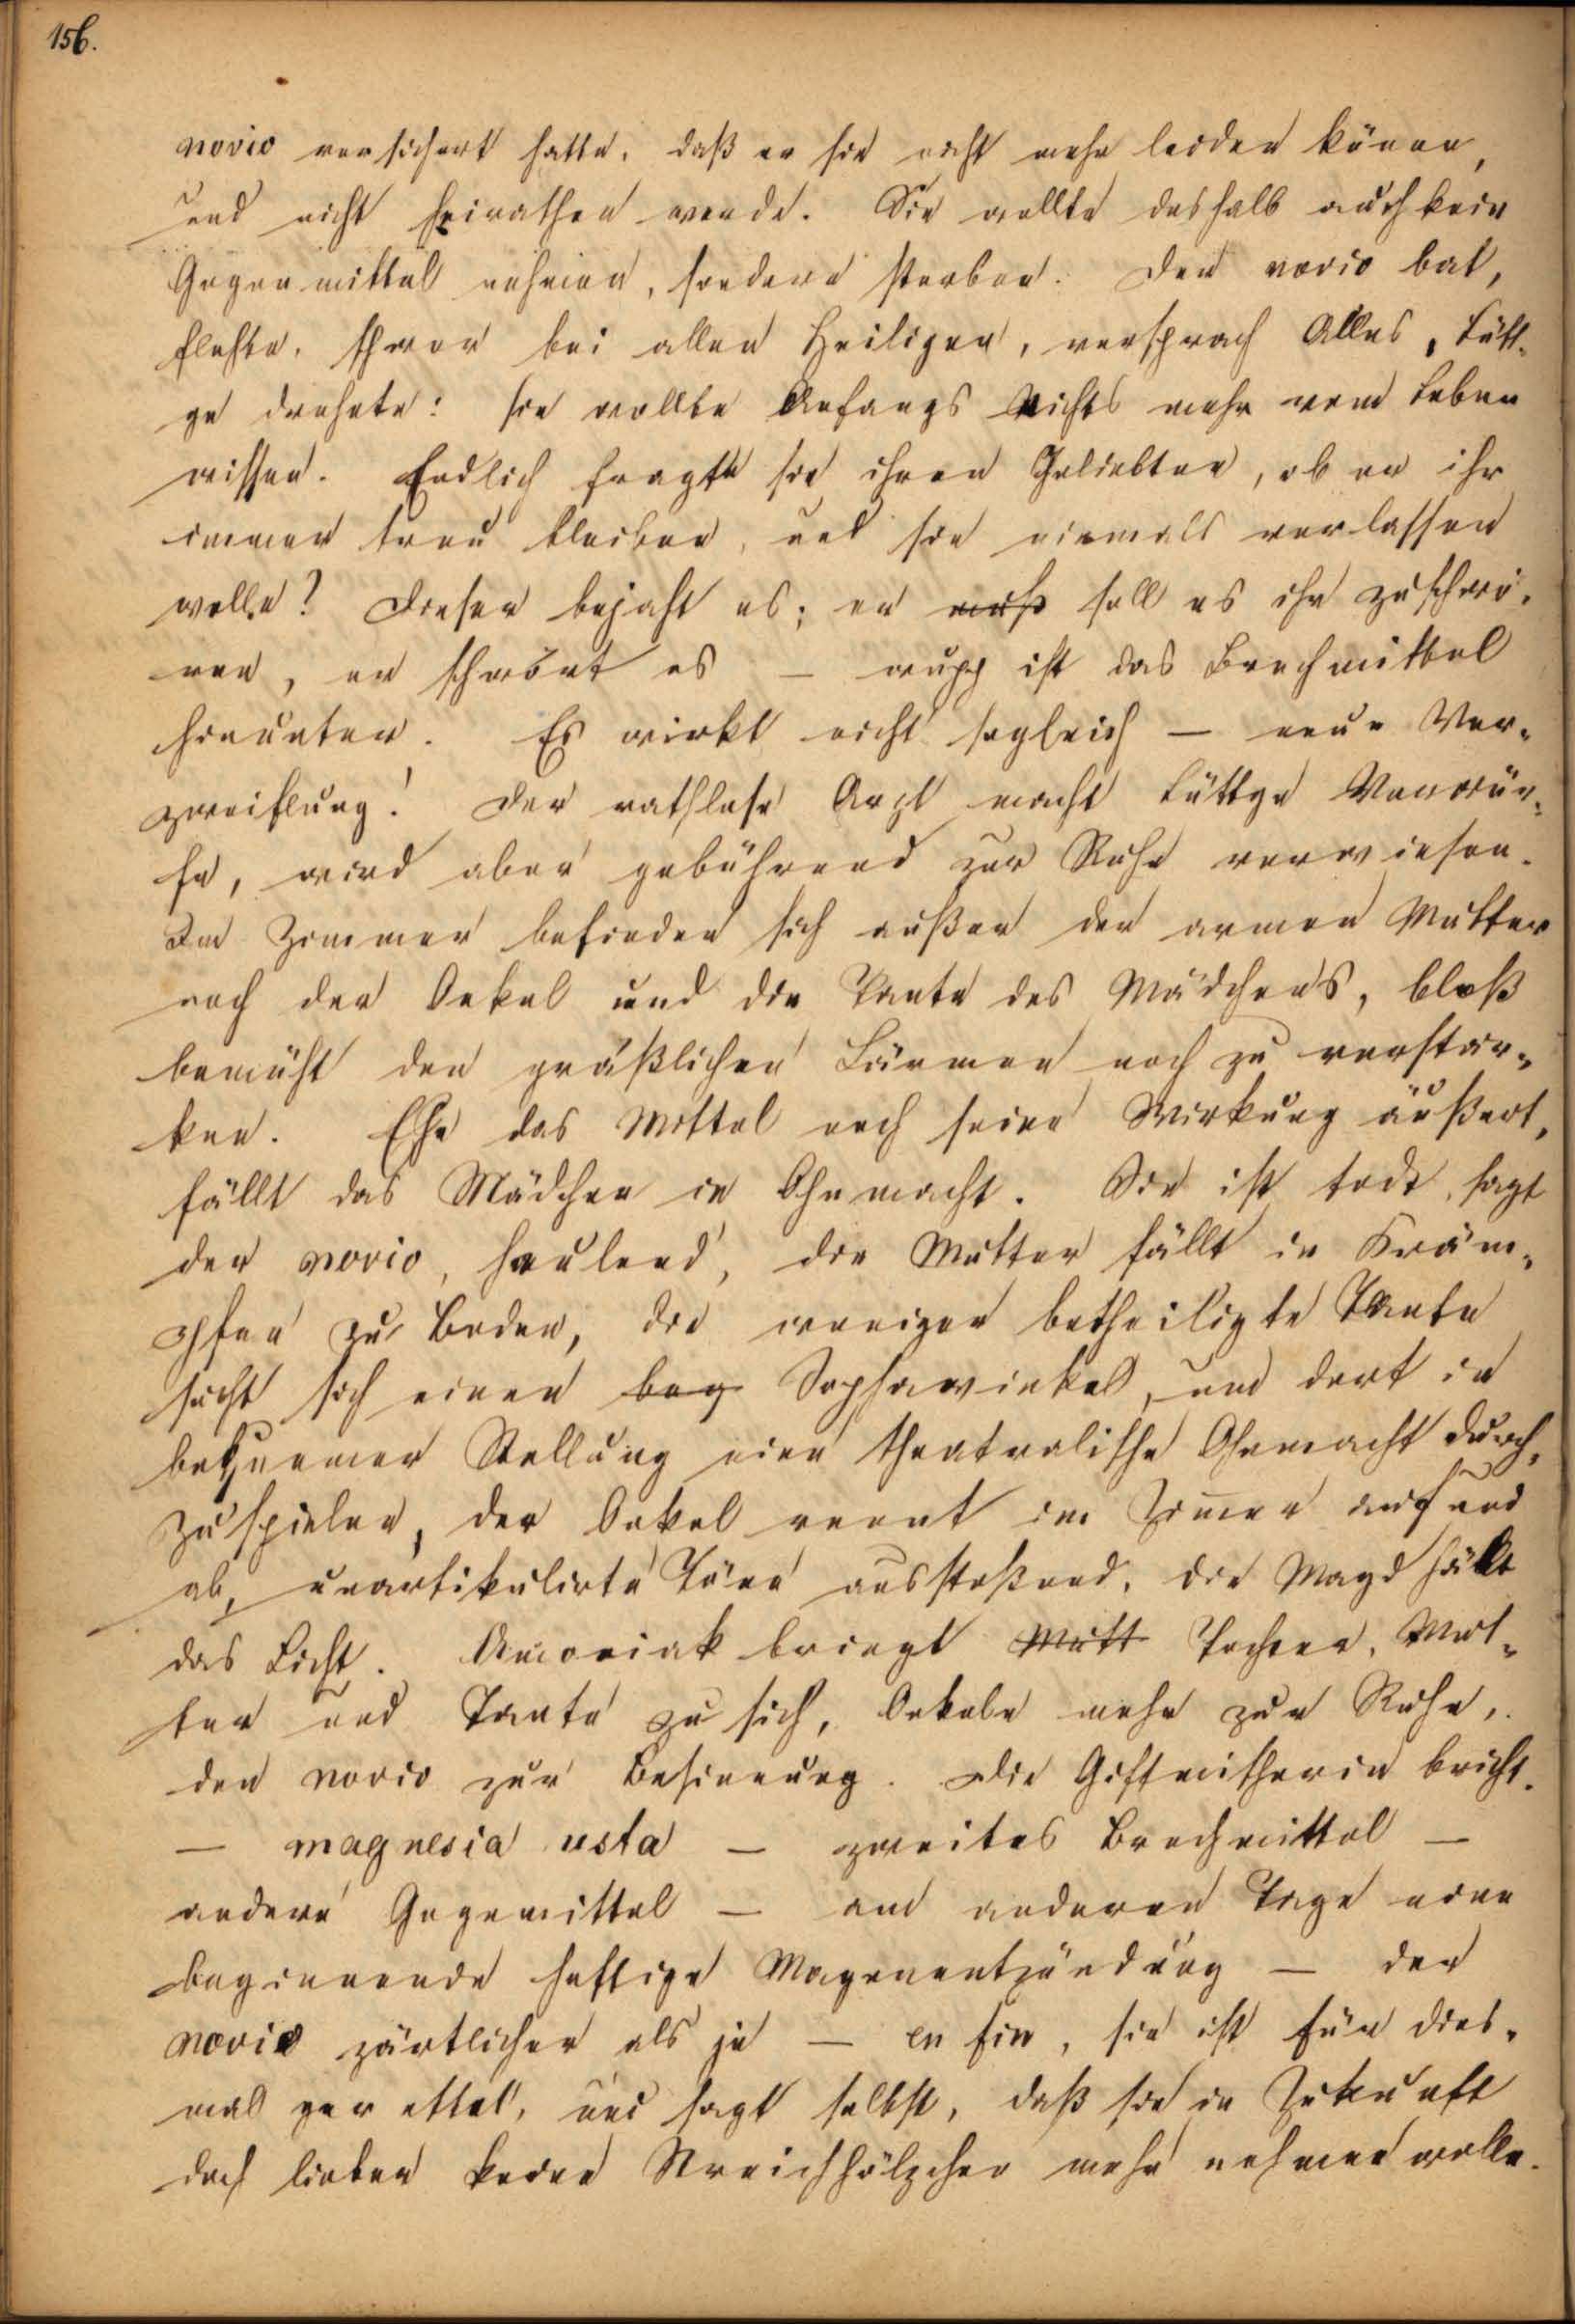 156.
novio versichert hatte, daß er sie nicht mehr leiden könne,
und nicht heirathen werde. Sie wollte deshalb auch kein
Gegenmittel nehmen, sondern sterben. Der novio bat,
flehte, schwor bei allen Heiligen, versprach Alles, Lütt-
ge drohete: sie wollte Anfangs Nichts mehr vom Leben
wissen. Endlich fragte sie ihren Geliebten, ob er ihr
immer treu bleiben, und sie niemals verlassen
wolle? Dieser bejaht es; er muß soll es ihr zuschwö-
ren, er schwört es – wupp ist das Brechmittel
hinunter. Es wirkt nicht sogleich – neue Ver-
zweiflung! Der rathlose Arzt macht Lüttge Vorwür-
fe, wird aber gebührend zur Ruhe verwiesen.
Im Zimmer befinden sich außer der armen Mutter
noch der Onkel und die Tante des Mädchens, bloß
bemüht den gräßlichen Lärmen noch zu verstär-
ken. Ehe das Mittel noch seine Wirkung äußert,
fällt das Mädchen in Ohnmacht. Sie ist todt, sagt
der novio, heulend, die Mutter fällt in Kräm-
pfen zu Boden, die weniger betheiligte Tante
sucht sich einen beq Sophawinkel, um dort in
bequemer Stellung eine theatralische Ohnmacht durch-
zuspielen, der Onkel rennt im Zimer auf und
ab, unartikulirte Töne ausstoßend, die Magd hält
das Licht. Amoniak bringt Mutt Tochter, Mut-
ter und Tante zu sich, Onkeln mehr zur Ruhe,
den novio zur Besinnung. Die Giftmischerin bricht.
– magnesia usta – zweites Brechmittel –
andere Gegenmittel – am anderen Tage eine
beginnende heftige Magenentzündung – der
novio zärtlicher als je – en fin, sie ist für dies-
mal gerettet, und sagt selbst, daß sie in Zukunft
doch lieber keine Streichhölzchen mehr nehmen wolle.